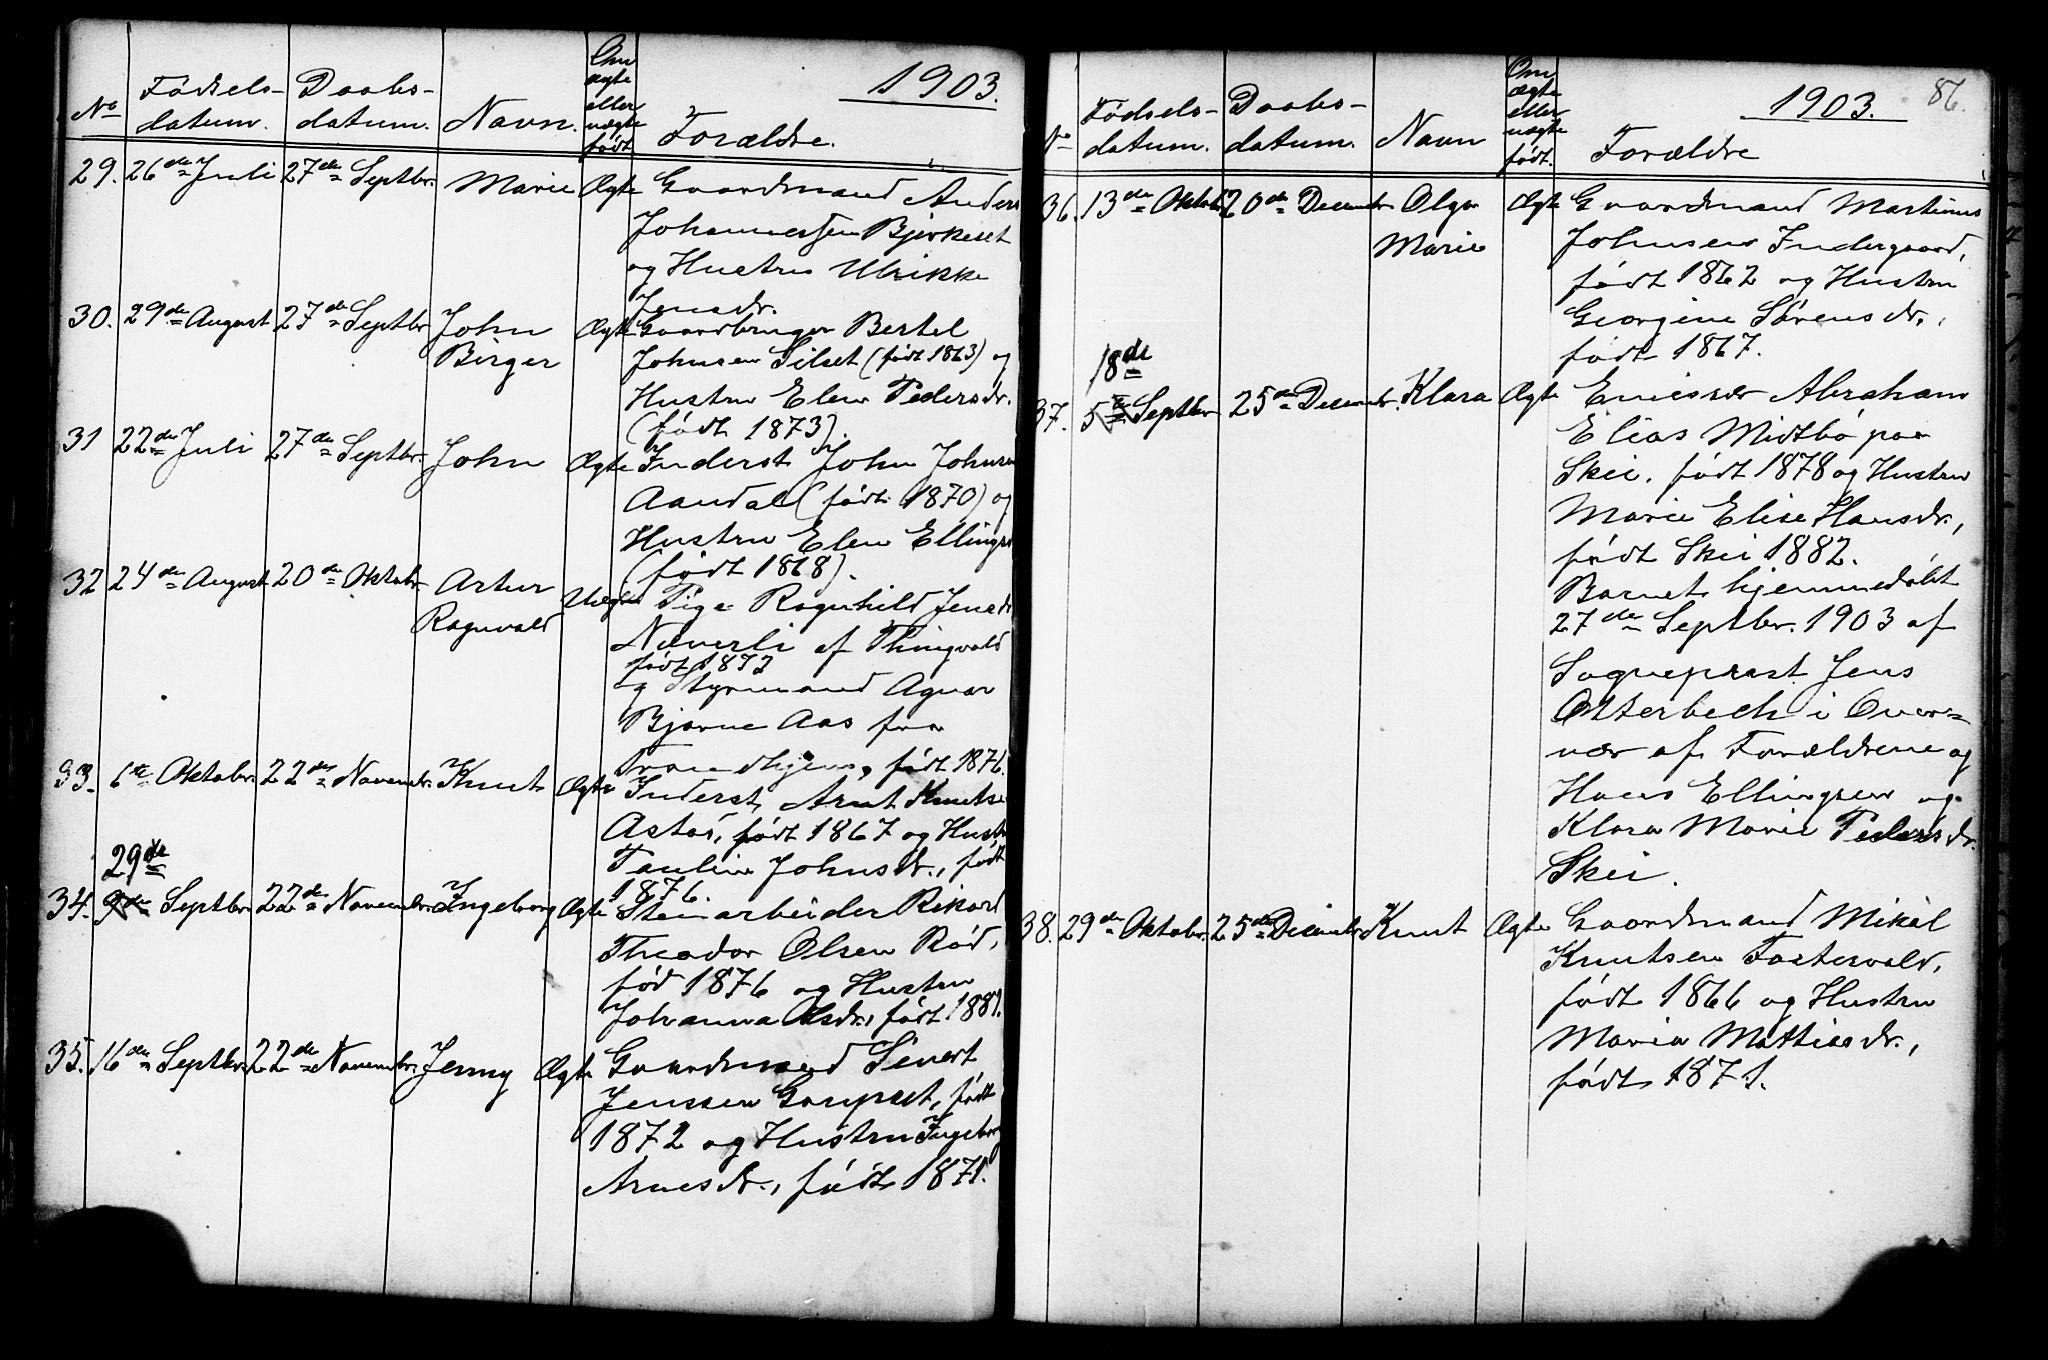 1903.
No
Fødsels-
datum.
Daabs-
datum.
Navn.
Om
ægte
eller
uægte
født
Forældre.
29. 26de Juli 27de Septbr. Marie Ægte Gaardmand Anders
Johannessen Bjerkeset
og Hustru Ulrikke
Jensdr.
30. 29de August 27de Septbr. John Ægte Gaardbruger Bertel
Birger Johnsen Silset (født 1863) og
Hustru Elen Pedersdr.
(født 1873).
31 22de Juli 27de Septbr. John Ægte Inderst John Johnsen
Aandal (født 1870) og
Hustru Elen Ellings
(født 1868).
32 24de August 20de Oktobr. Artur Uægte Pige Ragnhild Jensdr
Ragnvald Næverli af Thingvold
født 1872
og Styrmand Agnar
Bjarne Aas fra
Trondhjem, født 1876.
33. 6te Oktobr. 22de Novembr. Knut Ægte Inderst Arnt Knutsen
Astad, født 1867 og Hustru
Pauline Johnsdr., født
1876.
29de
34. 9de Septbr. 22de Novembr. Ingeborg Ægte Stenarbeider Rikard
Theodor Olsen Rød,
fød 1876 og Hustru
Johanna Olsdr., født 1881.
35. 16de Septbr. 22de Novembr. Jenny Ægte Gaardmand Sivert
Jenssen Gaupset, født
1872 og Hustru Ingebor
Arnesdr., født 1871.
86.
1903.
No
Fødsels-
datum.
Daabs-
datum.
Navn
Om
ægte
eller
uægte
født.
Forældre
36. 13de Oktobr. 20de Decembr. Olga Ægte Gaardmand Martinus
Marie Johnsen Indergaard,
født 1862 og Hustru
Georgine Sørensdr.,
født 1867.
18de
37. 5te Septbr. 25de Decembr. Klara Ægte Emissær Abraham
Elias Midtbø paa
Skei, født 1878 og Hustru
Marie Elise Hansdr.,
født Skei 1882.
Barnet hjemmedøbt
27de Septbr. 1903 af
Sogneprest Jens
Otterbech i Over=
vær af Forældrene og
Hans Ellingsen og
Klara Marie Pedersdr.
Skei.
38. 29de Oktobr. 25de Decembr. Knut Ægte Gaardmand Mikal
Knutsen Fostervold,
født 1866 og Hustru
Maria Mattiasdr.,
født 1871.